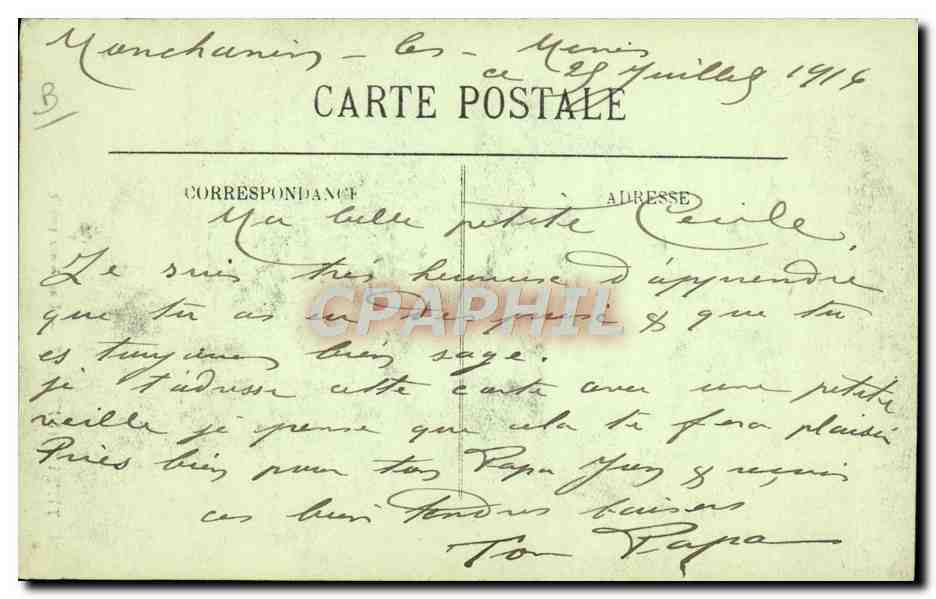 Monchanin - les - Mines
ce 25 Juillet 1914
B
CARTE POSTALE
CORRESPONDANCE
ADRESSE
Ma belle petite Cecile,
Je suis très heureuse d'apprendre
que tu as un & que tu
CPAPHIL
es toujours bien sage.
je t'adresse cette carte avec une petite
vieille je pense que cela te fera plaisir
Pries bien pour ton Papa & reçois
ces bien tendres baisers
Ton Papa